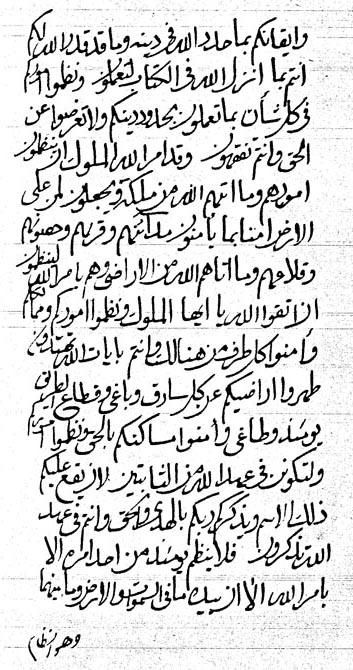 وايقانكم بما حدد الله في دينه وما قد قدر الله لكم
انتم بما انزل الله في الكتاب لتعملون ونظموا اموركم
في كل شأن بما تعملون بحدود دينكم ولا تعرضوا عن
الحق وانتم تفقهون وقد امر الله الملوك ان ينظمون
امورهم وما اتيهم الله من ملكه ويجعلون لمن على
الارض امنا بما يأمنون مدائنهم وقريهم وحصونهم
وقلاعهم وما اتاهم الله من الاراضي وهم بامر الله لينظمون
الا اتقوا الله يا ايها الملوك ونظموا اموركم ومما لككم
وامنوا كل طرف من هنالك وانتم بايات الله تهتدون
طهروا اراضيكم عن كل سارق وباغي وقطاع الطريق
يومئذ وطاغي وامنوا مساكنكم بالحق ونظموا
ولتكونن في عهد الله من الثابتين الا ان يقع عليكم
ذلك الاسم ويذكركم ربكم بالهدى والحق وانتم في عهد
الله تذكرون فلا ينظم يومئذ من احد امره الا
بامر الله الا ان بيده ما في السموات والارض وما بينهما
وهو النظام